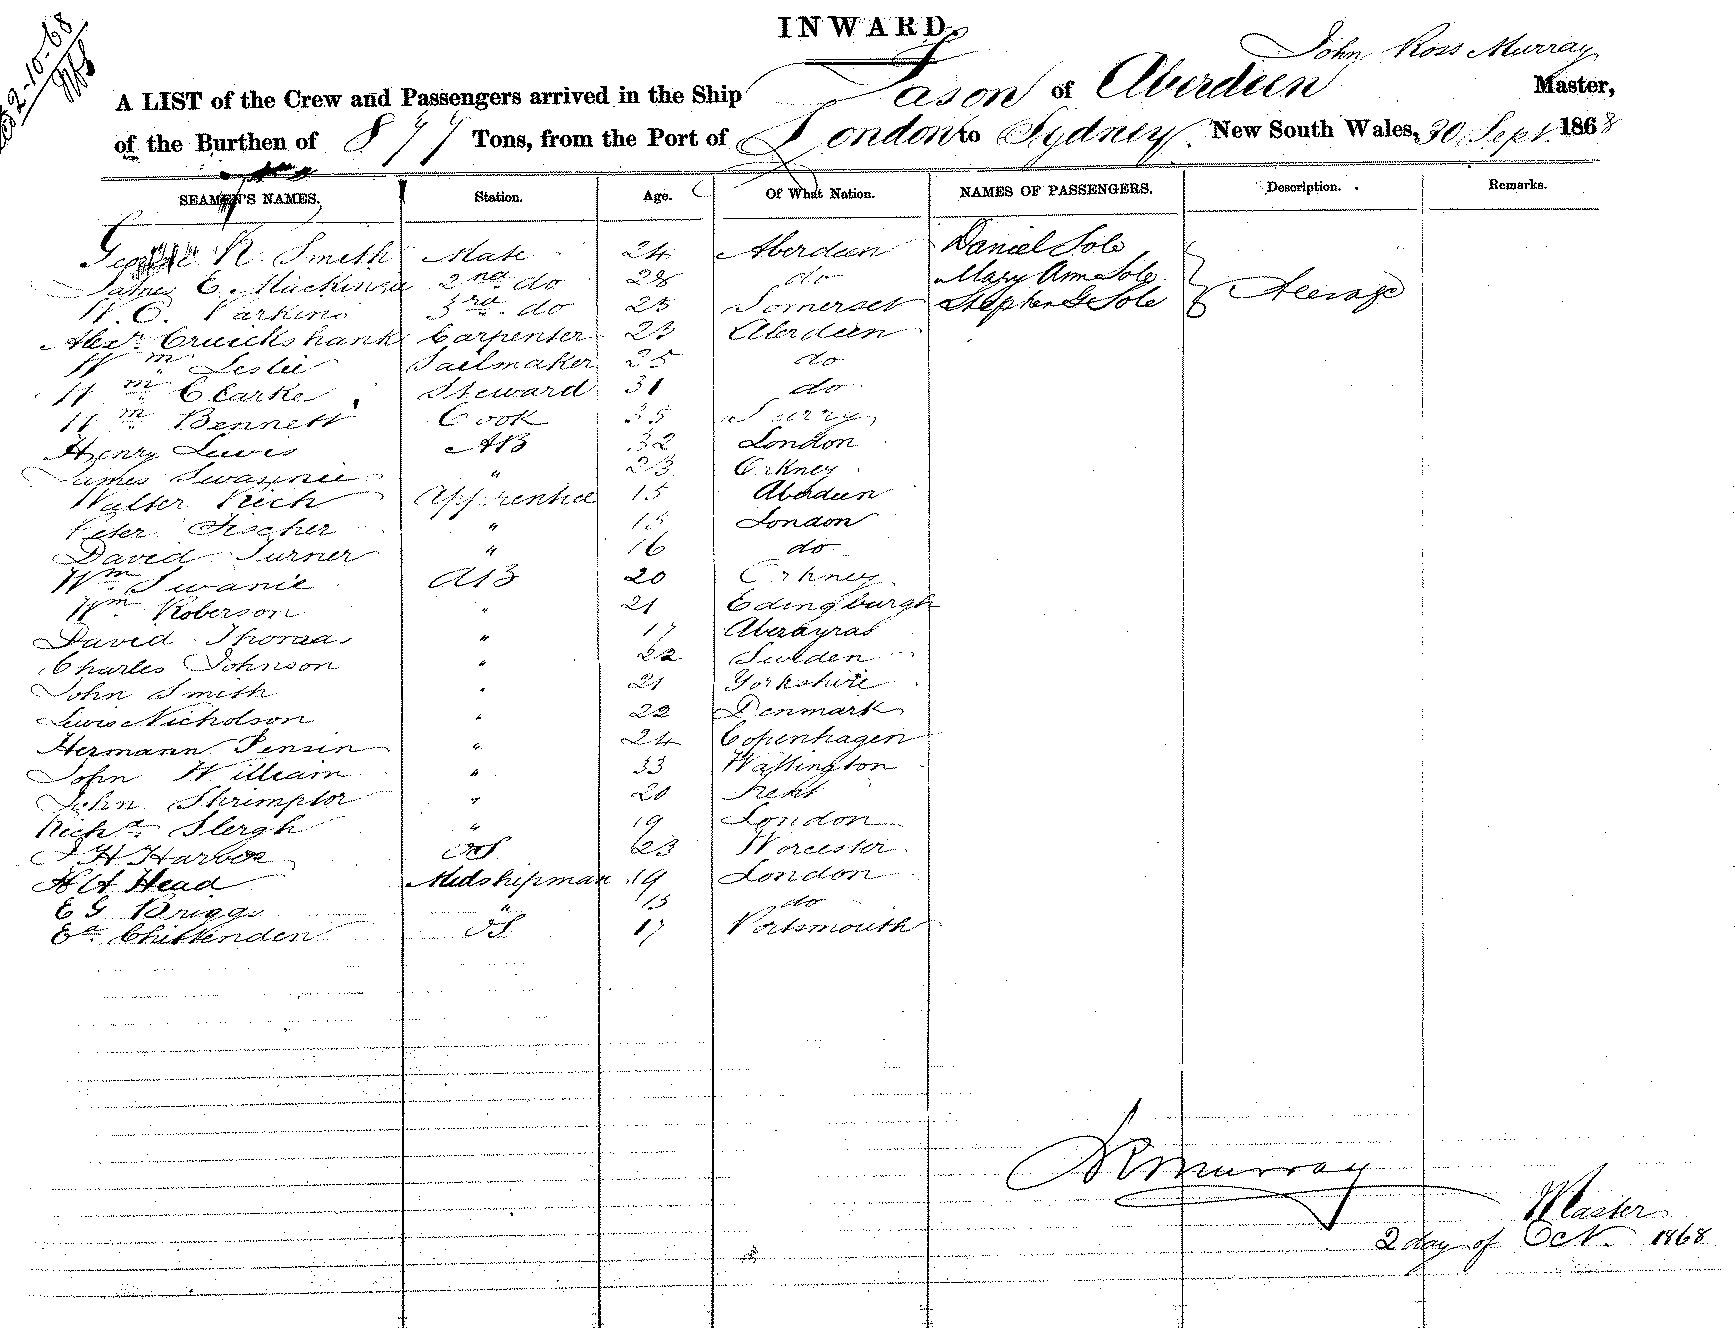 INWARD.
2-10-68
John Ross Murray
A LIST of the Crew and Passengers arrived in the Ship Jason of Aberdeen Master,
of the Burthen of 877 Tons, from the Port of London to Sydney New South Wales, 30 Sept. 1868
SEAMEN'S NAMES. Station. Age. Of What Nation. NAMES OF PASSENGERS. Description. Remarks.
George R. Smith Mate 24 Aberdeen Daniel Sole
James E. Mackenzie 2nd do 28 do Mary Ann Sole Steerage
W. C. Parkins 3rd do 23 Somerset Stephen G Sole
Alexr Cruickshank Carpenter 23 Aberdeen
Wm Leslie Sailmaker 25 do
Wm Clarke Steward 31 do
Wm Bennett Cook 35 Surry
Henry Lewis AB 32 London
James Swannie " 23 Orkney
Walter Rich Apprentice 15 Aberdeen
Peter Fischer " 15 London
David Turner " 16 do
Wm Swanie AB 20 Orkney
Wm Roberson " 21 Edingburgh
David Thomas " 17 Aberayras
Charles Johnson " 22 Sweden
John Smith " 21 Yorkshire
Lewis Nicholson " 22 Denmark
Hermann Jensin " 24 Copenhagen
John William " 33 Washington
John Shrimptor " 20 Kent
Richd Slergh " 19 London
J H Harboe OS 23 Worcester
H A Head Midshipman 19 London
E G Briggs " 15 do
Ed. Chittenden OS 17 Portsmouth
J R Murray
Master
2 day of Oct. 1868